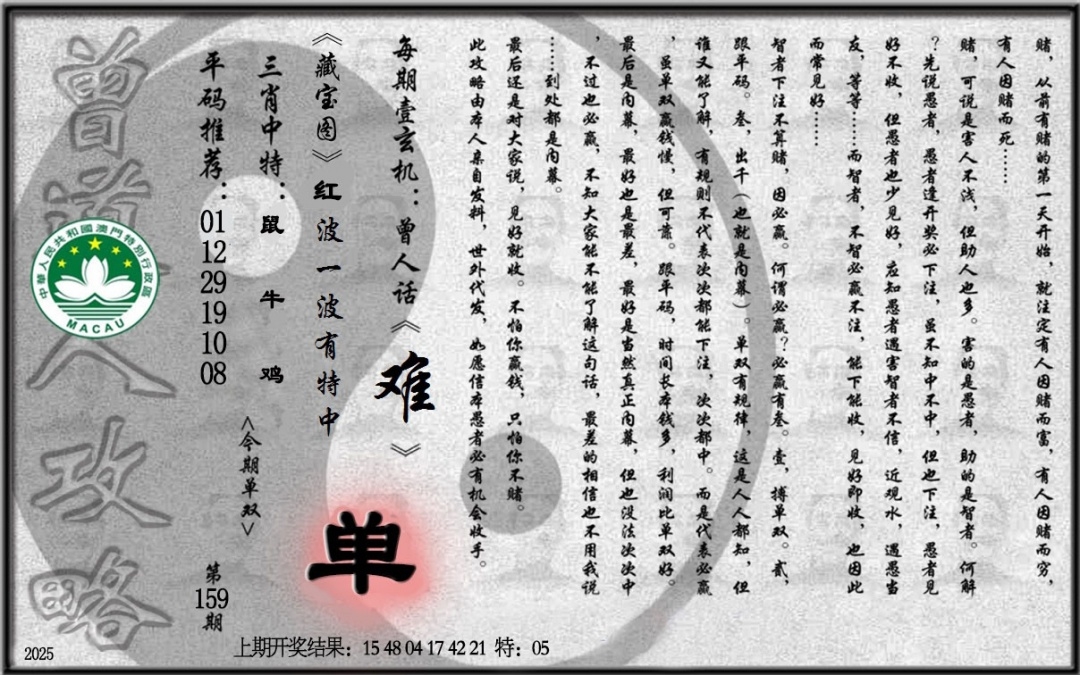 赌，从前有赌的第一天开始，就注定有人因赌而富，有人因赌而穷，
有人因赌而死……
赌，可说是害人不浅，但助人也多。害的是愚者，助的是智者。何解
？先说愚者，愚者逢开奖必下注，虽不知中不中，但也下注，愚者见
好不收，但愚者也少见好，应知愚者遇害智者不信，近观水，遇愚当
友，等等……而智者，不智必赢不注，能下能收，见好即收，也因此
而常见好……
智者下注不算赌，因必赢。何谓必赢？必赢有叁。壹，搏单双。贰，
跟平码。叁，出千（也就是内幕）。单双有规律，这是人人都知，但
谁又能了解，有规则不代表次次都能下注，次次都中。而是代表必赢
，虽单双赢钱慢，但可靠。跟平码，时间长本钱多，利润比单双好。
最后是内幕，最好也是最差，最好是当然真正内幕，但也没法次次中
，不过也必赢，不知大家能不能了解这句话，最差的相信也不用我说
……到处都是内幕。
最后还是对大家说，见好就收。不怕你赢钱，只怕你不赌。
此攻略由本人亲自发料，世外代发，如愿信本愚者必有机会收手。
每期壹玄机：曾人话《难》
《藏宝图》红波一波有特中
三肖中特：鼠 牛 鸡
平码推荐：01 12 29 19 10 08
<今期单双>
单
第159期
曾道人攻略
中華人民共和國澳門特別行政區
MACAU
2025
上期开奖结果：15 48 04 17 42 21 特：05